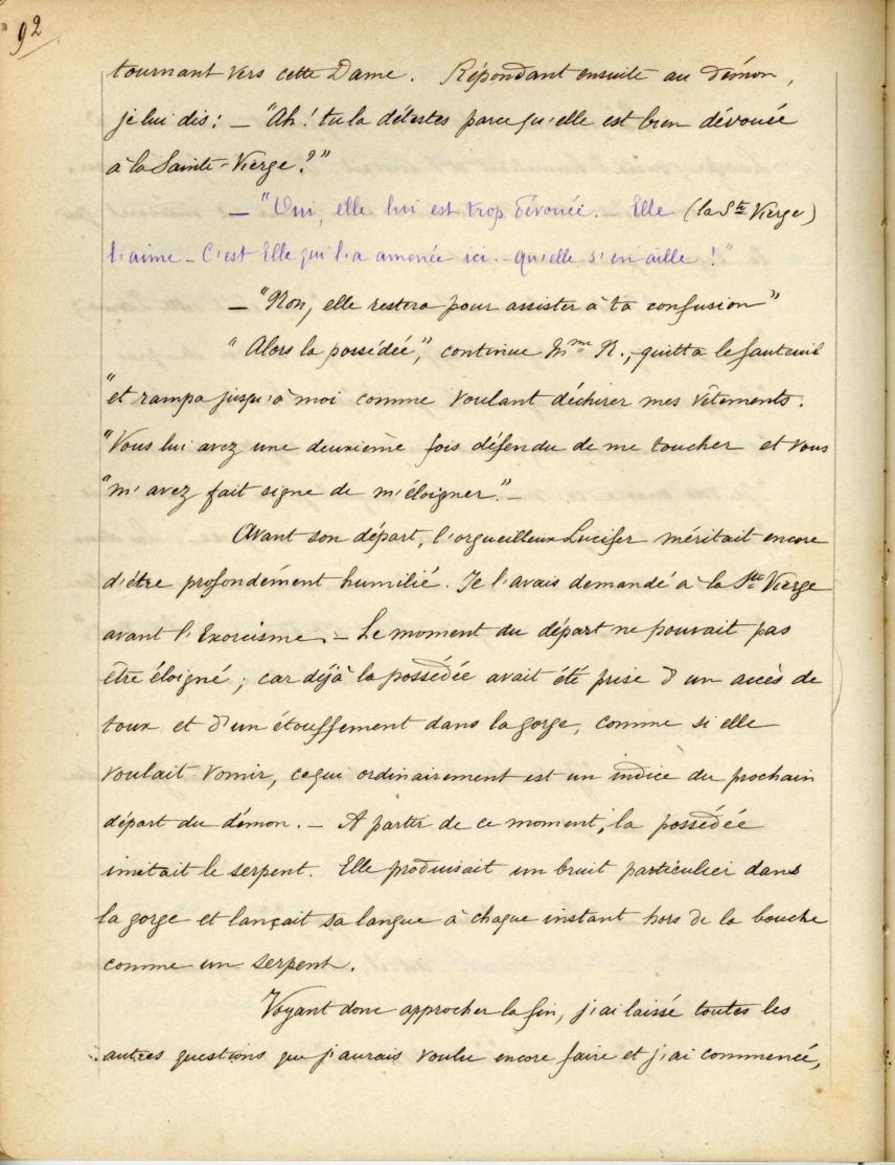 92
tournant vers cette Dame. Répondant ensuite au démon,
je lui dis : — "Ah ! tu la détestes parce qu'elle est bien dévouée
à la Sainte-Vierge ?"
— "Oui, elle lui est trop dévouée. — Elle (la Ste Vierge)
l'aime — C'est Elle qui l'a amenée ici. — Qu'elle s'en aille !"
— "Non, elle restera pour assister à ta confusion"
"Alors la possédée", continue Mme N., quitta le fauteuil
"et rampa jusqu'à moi comme voulant déchirer mes vêtements.
"Vous lui avez une deuxième fois défendu de me toucher et vous
"m'avez fait signe de m'éloigner." —
Avant son départ, l'orgueilleux Lucifer méritait encore
d'être profondément humilié. Je l'avais demandé à la Ste Vierge
avant l'Exorcisme. — Le moment du départ ne pouvait pas
être éloigné ; car déjà la possédée avait été prise d'un accès de
toux et d'un étouffement dans la gorge, comme si elle
voulait vomir, ce qui ordinairement est un indice du prochain
départ du démon. — A partir de ce moment, la possédée
imitait le serpent. Elle produisait un bruit particulier dans
la gorge et lançait sa langue à chaque instant hors de la bouche
comme un serpent.
Voyant donc approcher la fin, j'ai laissé toutes les
autres questions que j'aurais voulu encore faire et j'ai commencé,